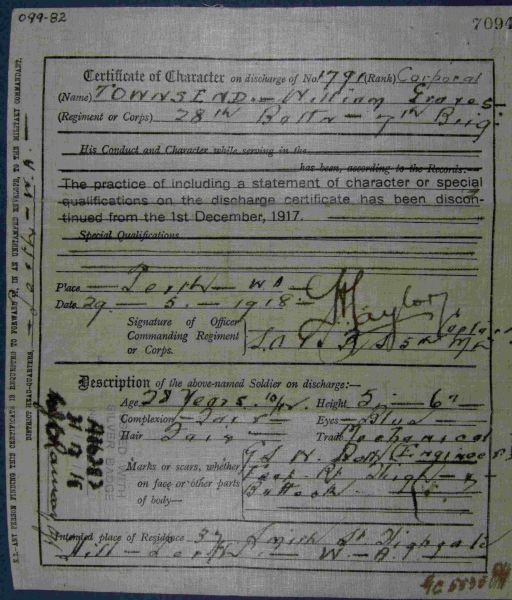 099-82
7094
Certificate of Character on discharge of No. 1791 (Rank) Corporal
(Name) TOWNSEND.— William Graves
(Regiment or Corps) 28th Battn — 7th Brig
His Conduct and Character while serving in the
has been, according to the Records:—
The practice of including a statement of character or special
qualifications on the discharge certificate has been discon-
tinued from the 1st December, 1917.
Special Qualifications
Place — Perth — WA —
Date 29 — 5 — 1918 —
Signature of Officer
Commanding Regiment
or Corps.
Taylor
Description of the above-named Soldier on discharge:—
Age 28 Years 10/12 Height 5 — 6
Complexion — Fair — Eyes — Blue
Hair Fair — Trade Mechanical
(Engineer)
Marks or scars, whether
on face or other parts
of body—
Buttock
Intended place of Residence 37 Smith St Highgate
Hill — Perth — W — A.
N.B.—ANY PERSON FINDING THIS CERTIFICATE IS REQUESTED TO FORWARD IT, IN AN UNSTAMPED ENVELOPE TO THE MILITARY COMMANDANT,
DISTRICT HEAD-QUARTERS,
SILVER BADGE